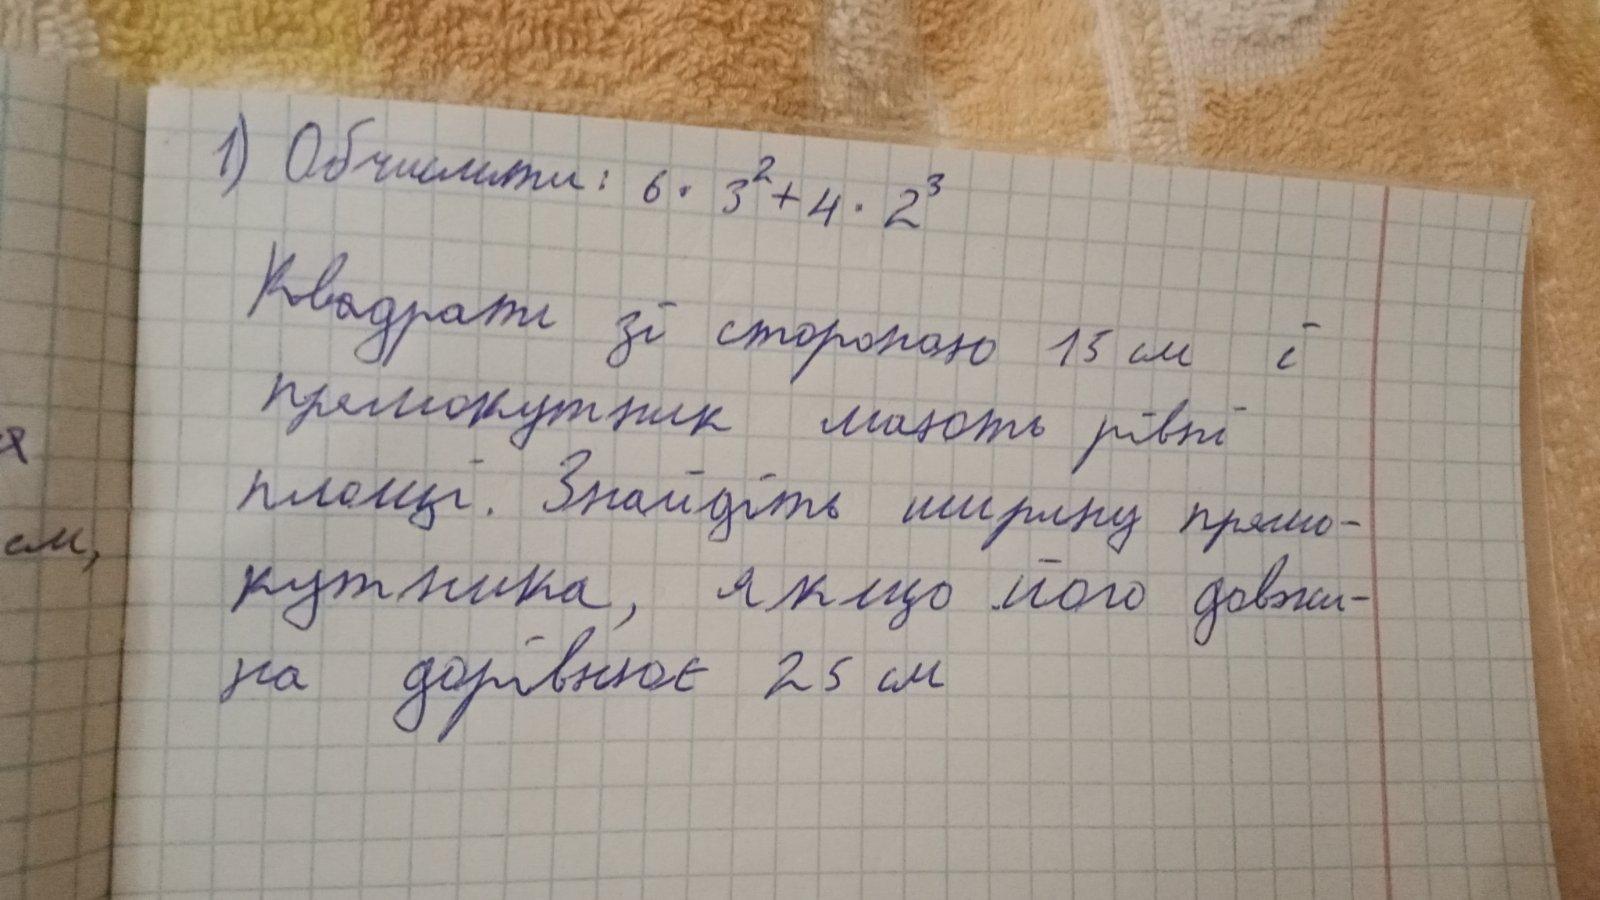 1) Обчислити: 6 · 3² + 4 · 2³
Квадрати зі стороною 15 см і
прямокутник мають рівні
площі. Знайдіть ширину прямо-
кутника, якщо його довжи-
на дорівнює 25 см
я
см,